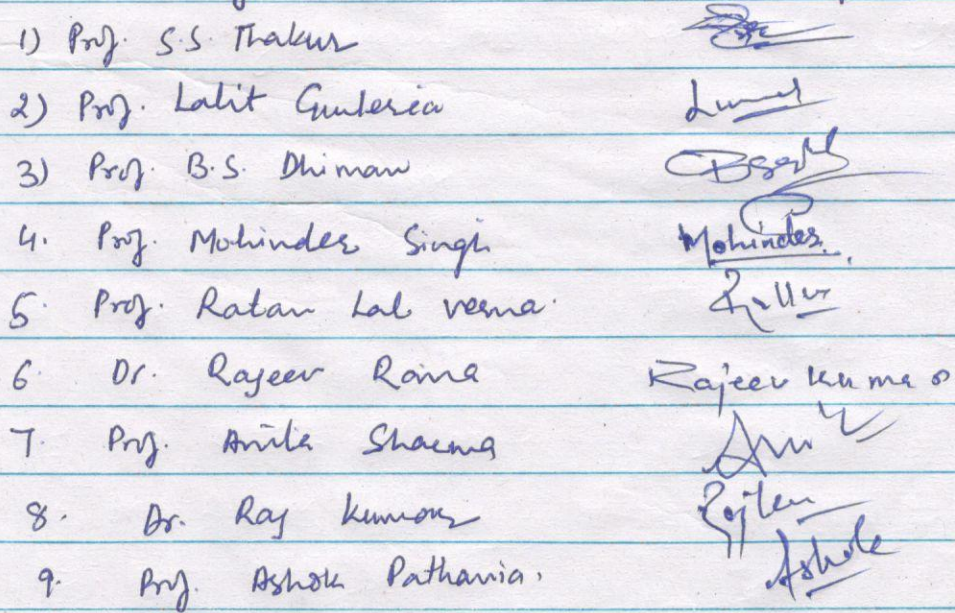 1) Prof. S.S. Thakur
2) Prof. Lalit Guleria
3) Prof. B.S. Dhiman
4. Prof. Mohinder Singh Mohinder.
5. Prof. Ratan Lal verma.
6. Dr. Rajeev Rana Rajeev kumar
7. Prof. Anita Sharma
8. Dr. Raj kumar
9. Prof. Ashok Pathania. Ashok